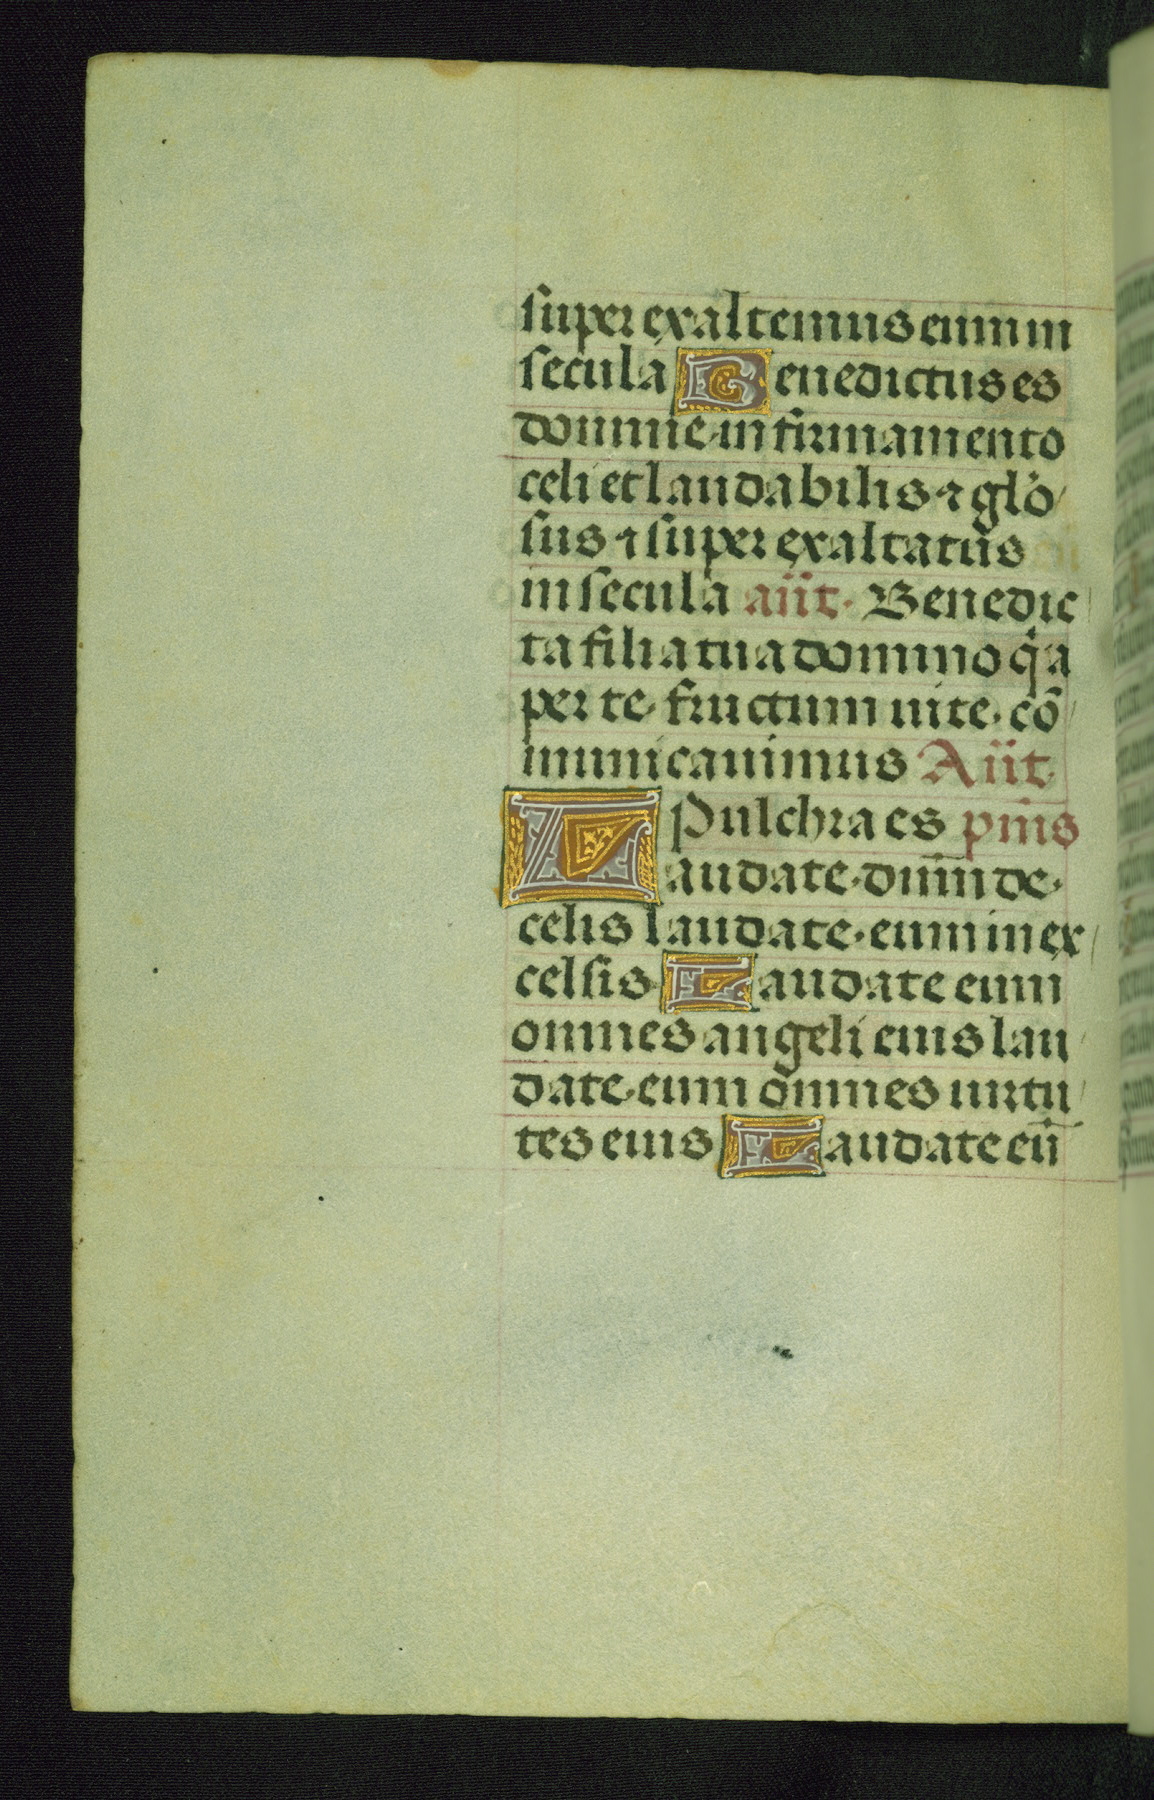 super exaltemus eum in
secula Benedictus es
domine in firmamento
celi et laudabilis ⁊ glo
sus ⁊ super exaltatus
in secula añt. Benedic
ta filia tua domino q̇a
per te fructum uite cō
municauimus Añt
Pulchra es pm̄s
Laudate dnm̄ de
celis laudate eum in ex
celsis Laudate eum
omnes angeli eius lau
date eum omnes uirtu
tes eius Laudate eū